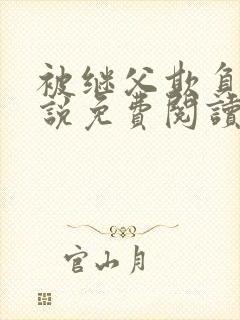 被继父欺負
說免費閱讀
官山月